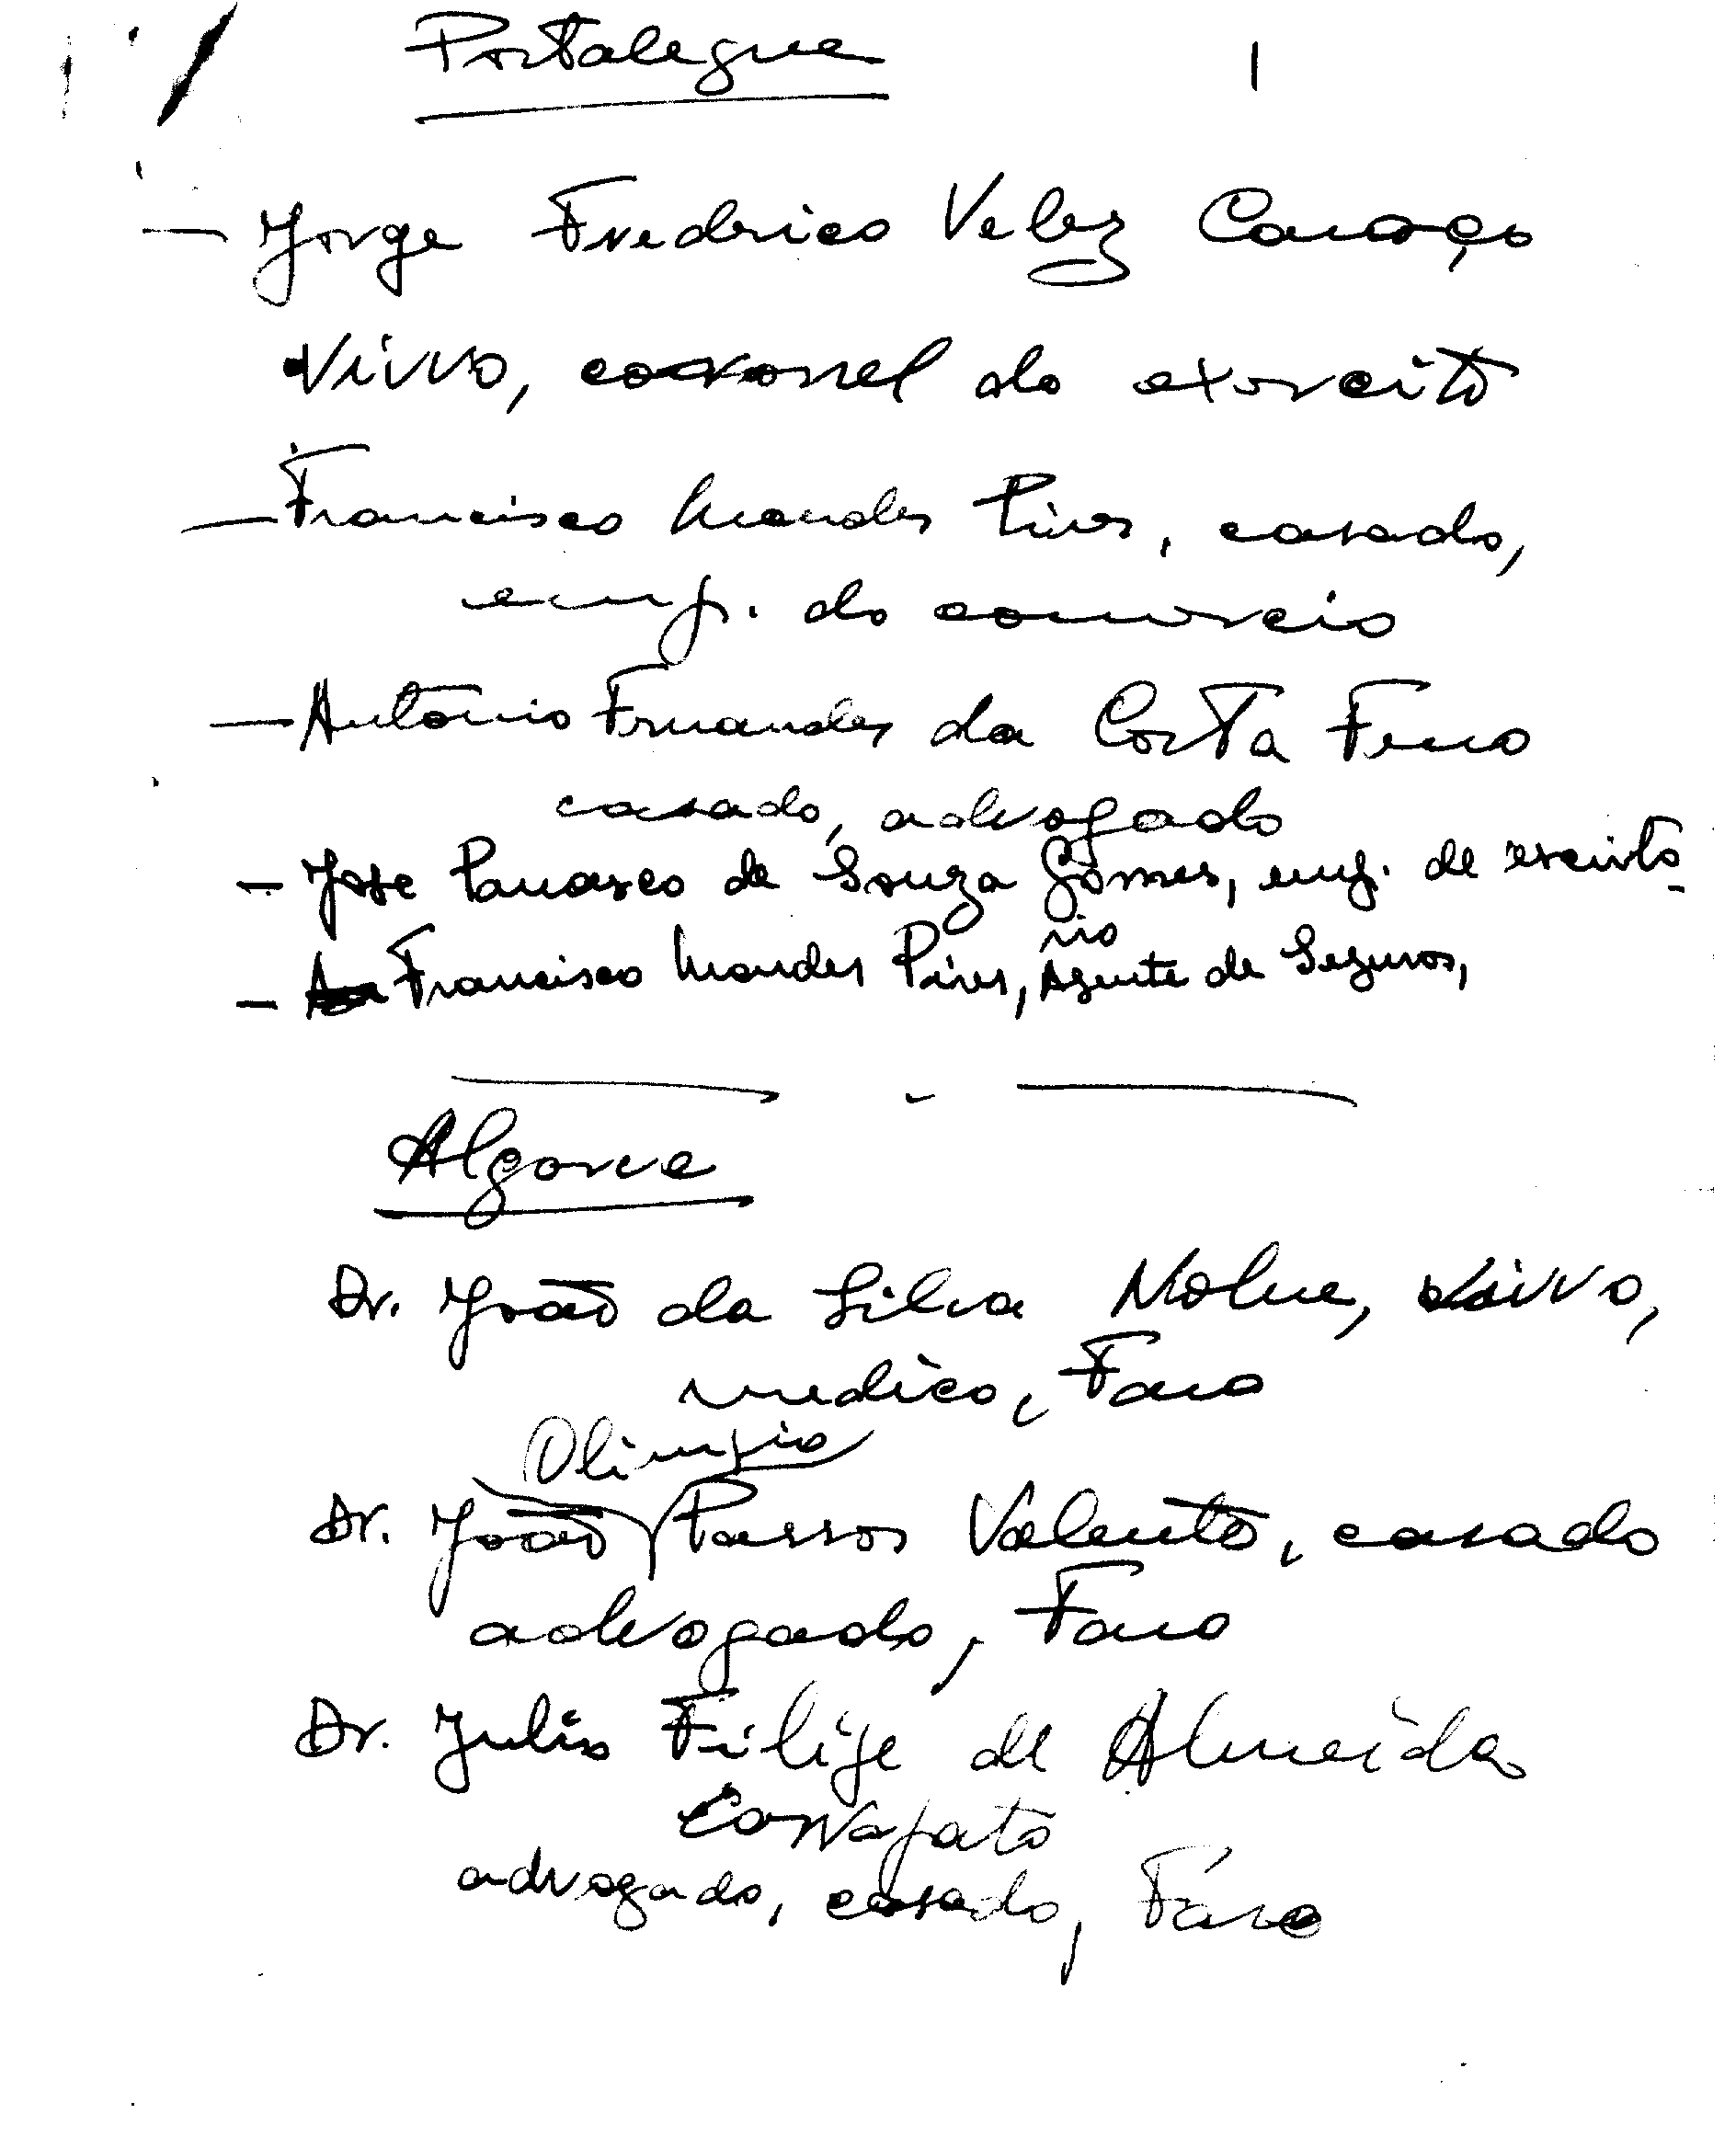 Portalegre 1
- Jorge Frederico Velez Caroço
Viuvo, coronel do exercito
- Francisco Mendes Pires, casado,
emp. do comercio
- António Fernandes da Costa Ferro
casado, advogado
- José Panasco de Souza Gomes, emp. de escritó-
rio
- Francisco Mendes Pires, Agente de Seguros,
Algarve
Dr. João da Silva Nobre, viuvo,
medico, Faro
Olimpio
Dr. João Passos Valente, casado
advogado, Faro
Dr. Julio Filipe de Almeida
Carrapato
advogado, casado, Faro